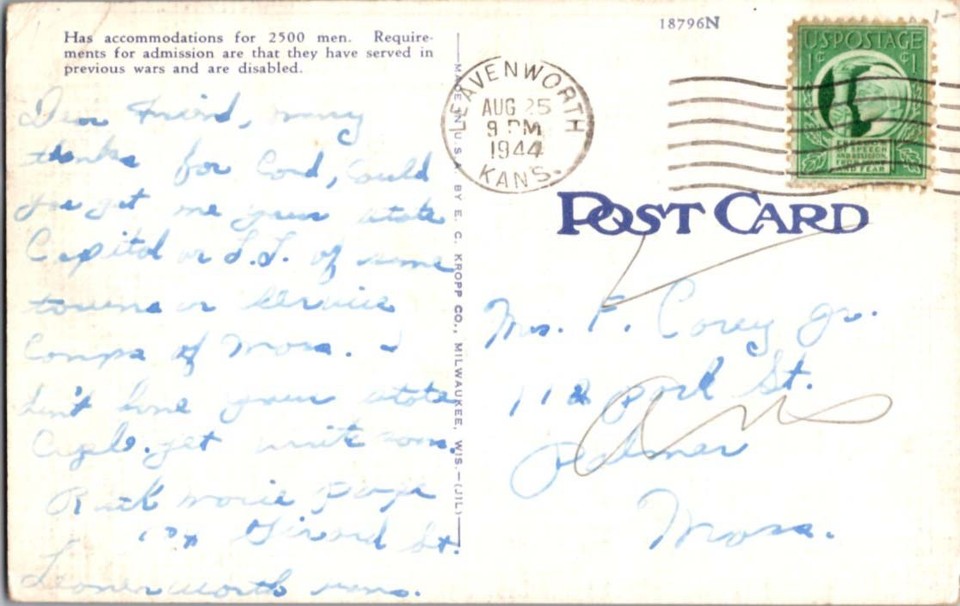 Has accommodations for 2500 men. Require-
ments for admission are that they have served in
previous wars and are disabled.
18796N
LEAVENWORTH
AUG 25
9 PM
1944
KANS.
U.S. POSTAGE
1¢ ¢1
FREEDOM
OF SPEECH
AND RELIGION
FROM WANT
AND FEAR
POST CARD
MADE IN U.S.A. BY E. C. KROPP CO., MILWAUKEE, WIS.—(JIL)
Dear Friend, many
thanks for Card, Could
you get me your state
Capitol or L.L. of some
towns or Service
Comps of Mass. I
don't have your state
Capl. yet write soon.
Ruth marie page
Girard St.
Leavenworth Kans.
Mrs. F. Corey Jr.
112 park St.
Palmer
Mass.
Ans